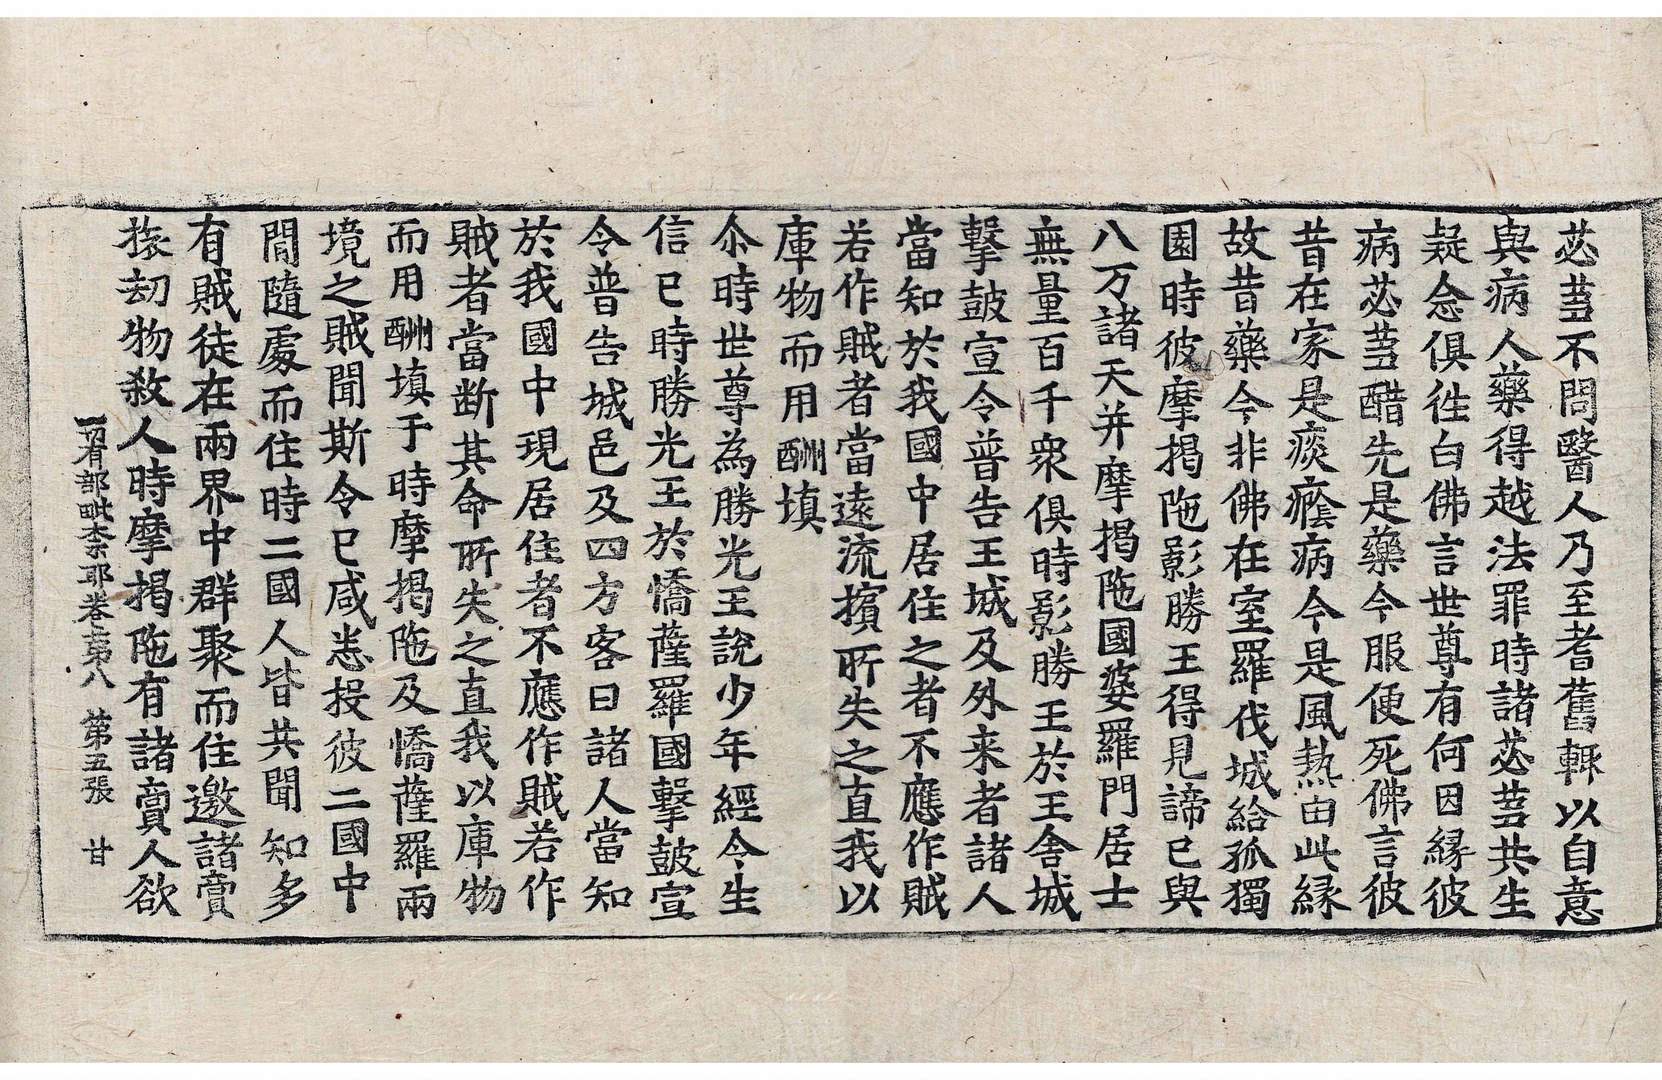 苾蒭不問醫人乃至耆舊輒以自意
與病人藥得越法罪時諸苾蒭共生
疑念俱徃白佛言世尊有何因緣彼
病苾蒭醋先是藥今服便死佛言彼
昔在家是痰癊病今是風熱由此緣
故昔藥今非佛在室羅伐城給孤獨
園時彼摩揭陁影勝王得見諦已與
八万諸天并摩揭陁國婆羅門居士
無量百千衆俱時影勝王於王舍城
擊鼓宣令普告王城及外来者諸人
當知於我國中居住之者不應作賊
若作賊者當遠流擯所失之直我以
庫物而用酬填
尒時世尊為勝光王說少年經令生
信已時勝光王於憍薩羅國擊鼓宣
令普告城邑及四方客曰諸人當知
於我國中現居住者不應作賊若作
賊者當断其命所失之直我以庫物
而用酬填于時摩揭陁及憍薩羅兩
境之賊聞斯令已咸悉投彼二國中
閒隨處而住時二國人皆共聞知多
有賊徒在兩界中群聚而住邀諸賣
㨿刼物殺人時摩揭陁有諸賣人欲
一切有部毗柰耶卷苐八 苐五張 甘